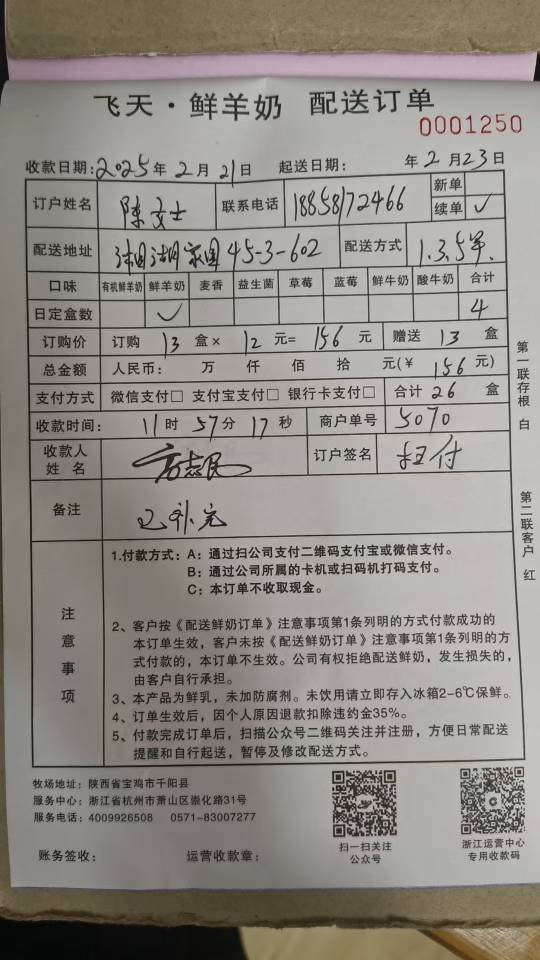 飞天·鲜羊奶 配送订单
0001250
收款日期:2025年2月21日 起送日期: 年2月23日
订户姓名 陈女士 联系电话 18858172466 新单
续单 ✓
配送地址 家园45-3-602 配送方式 1.3.5
口味 有机鲜羊奶 鲜羊奶 麦香 益生菌 草莓 蓝莓 鲜牛奶 酸牛奶 合计
日定盒数 ✓ 4
订购价 订购 13 盒× 12 元= 156 元 赠送 13 盒
总金额 人民币: 万 仟 佰 拾 元(¥ 156 元)
支付方式 微信支付□ 支付宝支付□ 银行卡支付□ 合计 26 盒
收款时间: 11时 57分 17秒 商户单号 5070
收款人
姓 名 方志民 订户签名 扫付
备注 已补完
注意事项
1.付款方式:A:通过扫公司支付二维码支付宝或微信支付。
B:通过公司所属的卡机或扫码机打码支付。
C:本订单不收取现金。
2、客户按《配送鲜奶订单》注意事项第1条列明的方式付款成功的
本订单生效,客户未按《配送鲜奶订单》注意事项第1条列明的方
式付款的,本订单不生效。公司有权拒绝配送鲜奶,发生损失的,
由客户自行承担。
3、本产品为鲜乳,未加防腐剂。未饮用请立即存入冰箱2-6℃保鲜。
4、订单生效后,因个人原因退款扣除违约金35%。
5、付款完成订单后,扫描公众号二维码关注并注册,方便日常配送
提醒和自行起送,暂停及修改配送方式。
第一联存根 白
第二联客户 红
牧场地址:陕西省宝鸡市千阳县
服务中心:浙江省杭州市萧山区崇化路31号
服务电话:4009926508 0571-83007277
扫一扫关注
公众号
浙江运营中心
专用收款码
账务签收: 运营收款章: